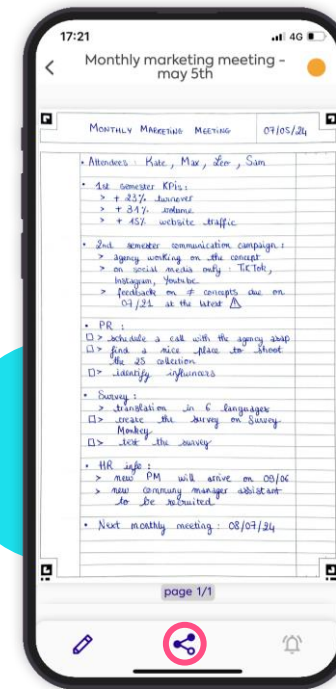 17:21
4G
Monthly marketing meeting -
may 5th
MONTHLY MARKETING MEETING 07/05/24
• Attendees : Kate, Max, Leo, Sam
• 1st semester KPIs :
> + 23% turnover
> + 31% volume
> + 45% website traffic
• 2nd semester communication campaign :
> agency working on the concept
> on social media only : TikTok,
Instagram, Youtube.
> feedback on ≠ concepts due on
07/21 at the latest ⚠
• PR :
□> schedule a call with the agency asap
□> find a nice place to shoot
the 25 collection
□> identify influencers
• Survey :
> translation in 6 languages
□> create the survey on Survey
Monkey
□> test the survey
• HR info :
> new PM will arrive on 09/06
> new community manager assistant
to be recruited
• Next monthly meeting : 08/07/24
page 1/1